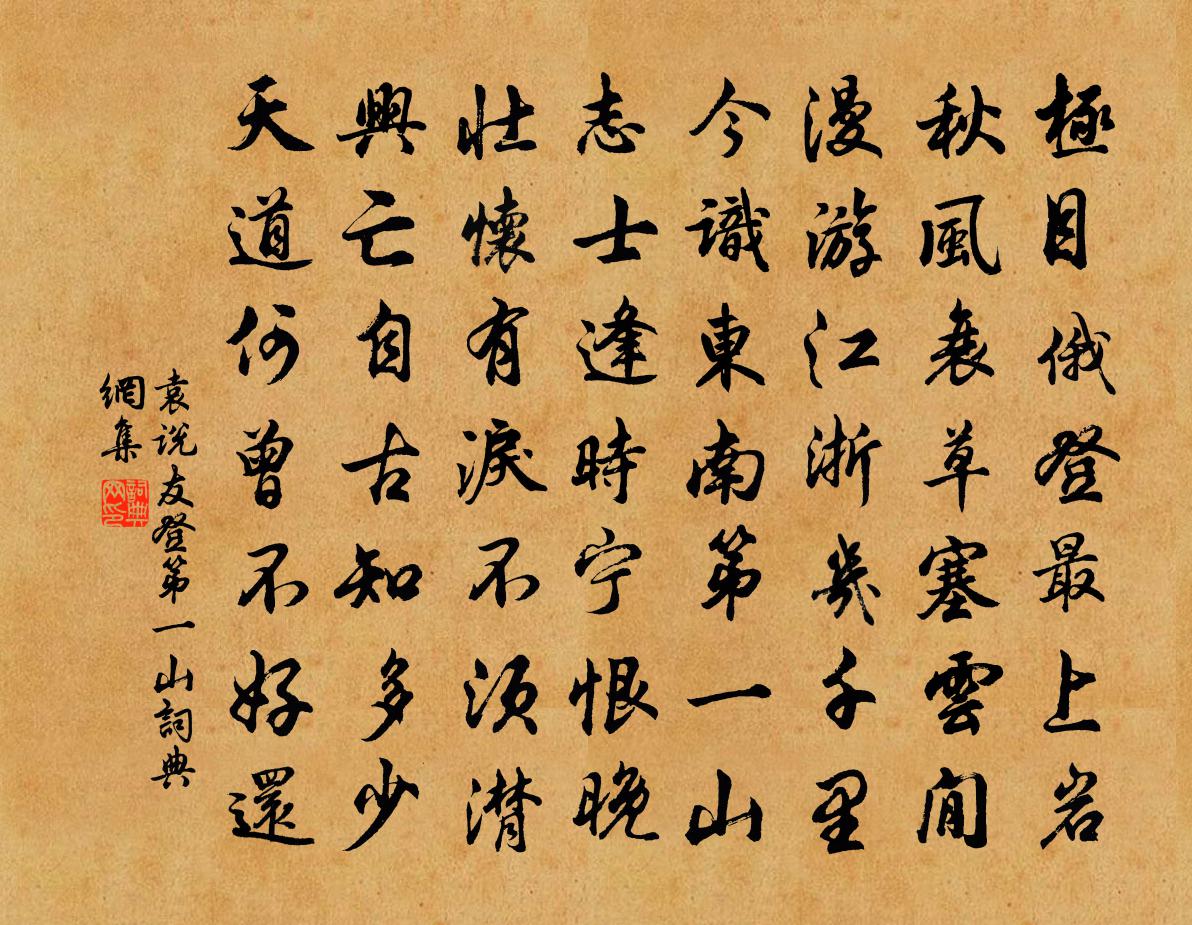 極目俄登最上岩
秋風衰草塞雲閒
漫游江浙幾千里
今識東南第一山
志士逢時宁恨晚
壯懷有淚不須潸
興亡自古知多少
天道何曾不好還
袁说友登第一山詞典
網集
詞典
网印